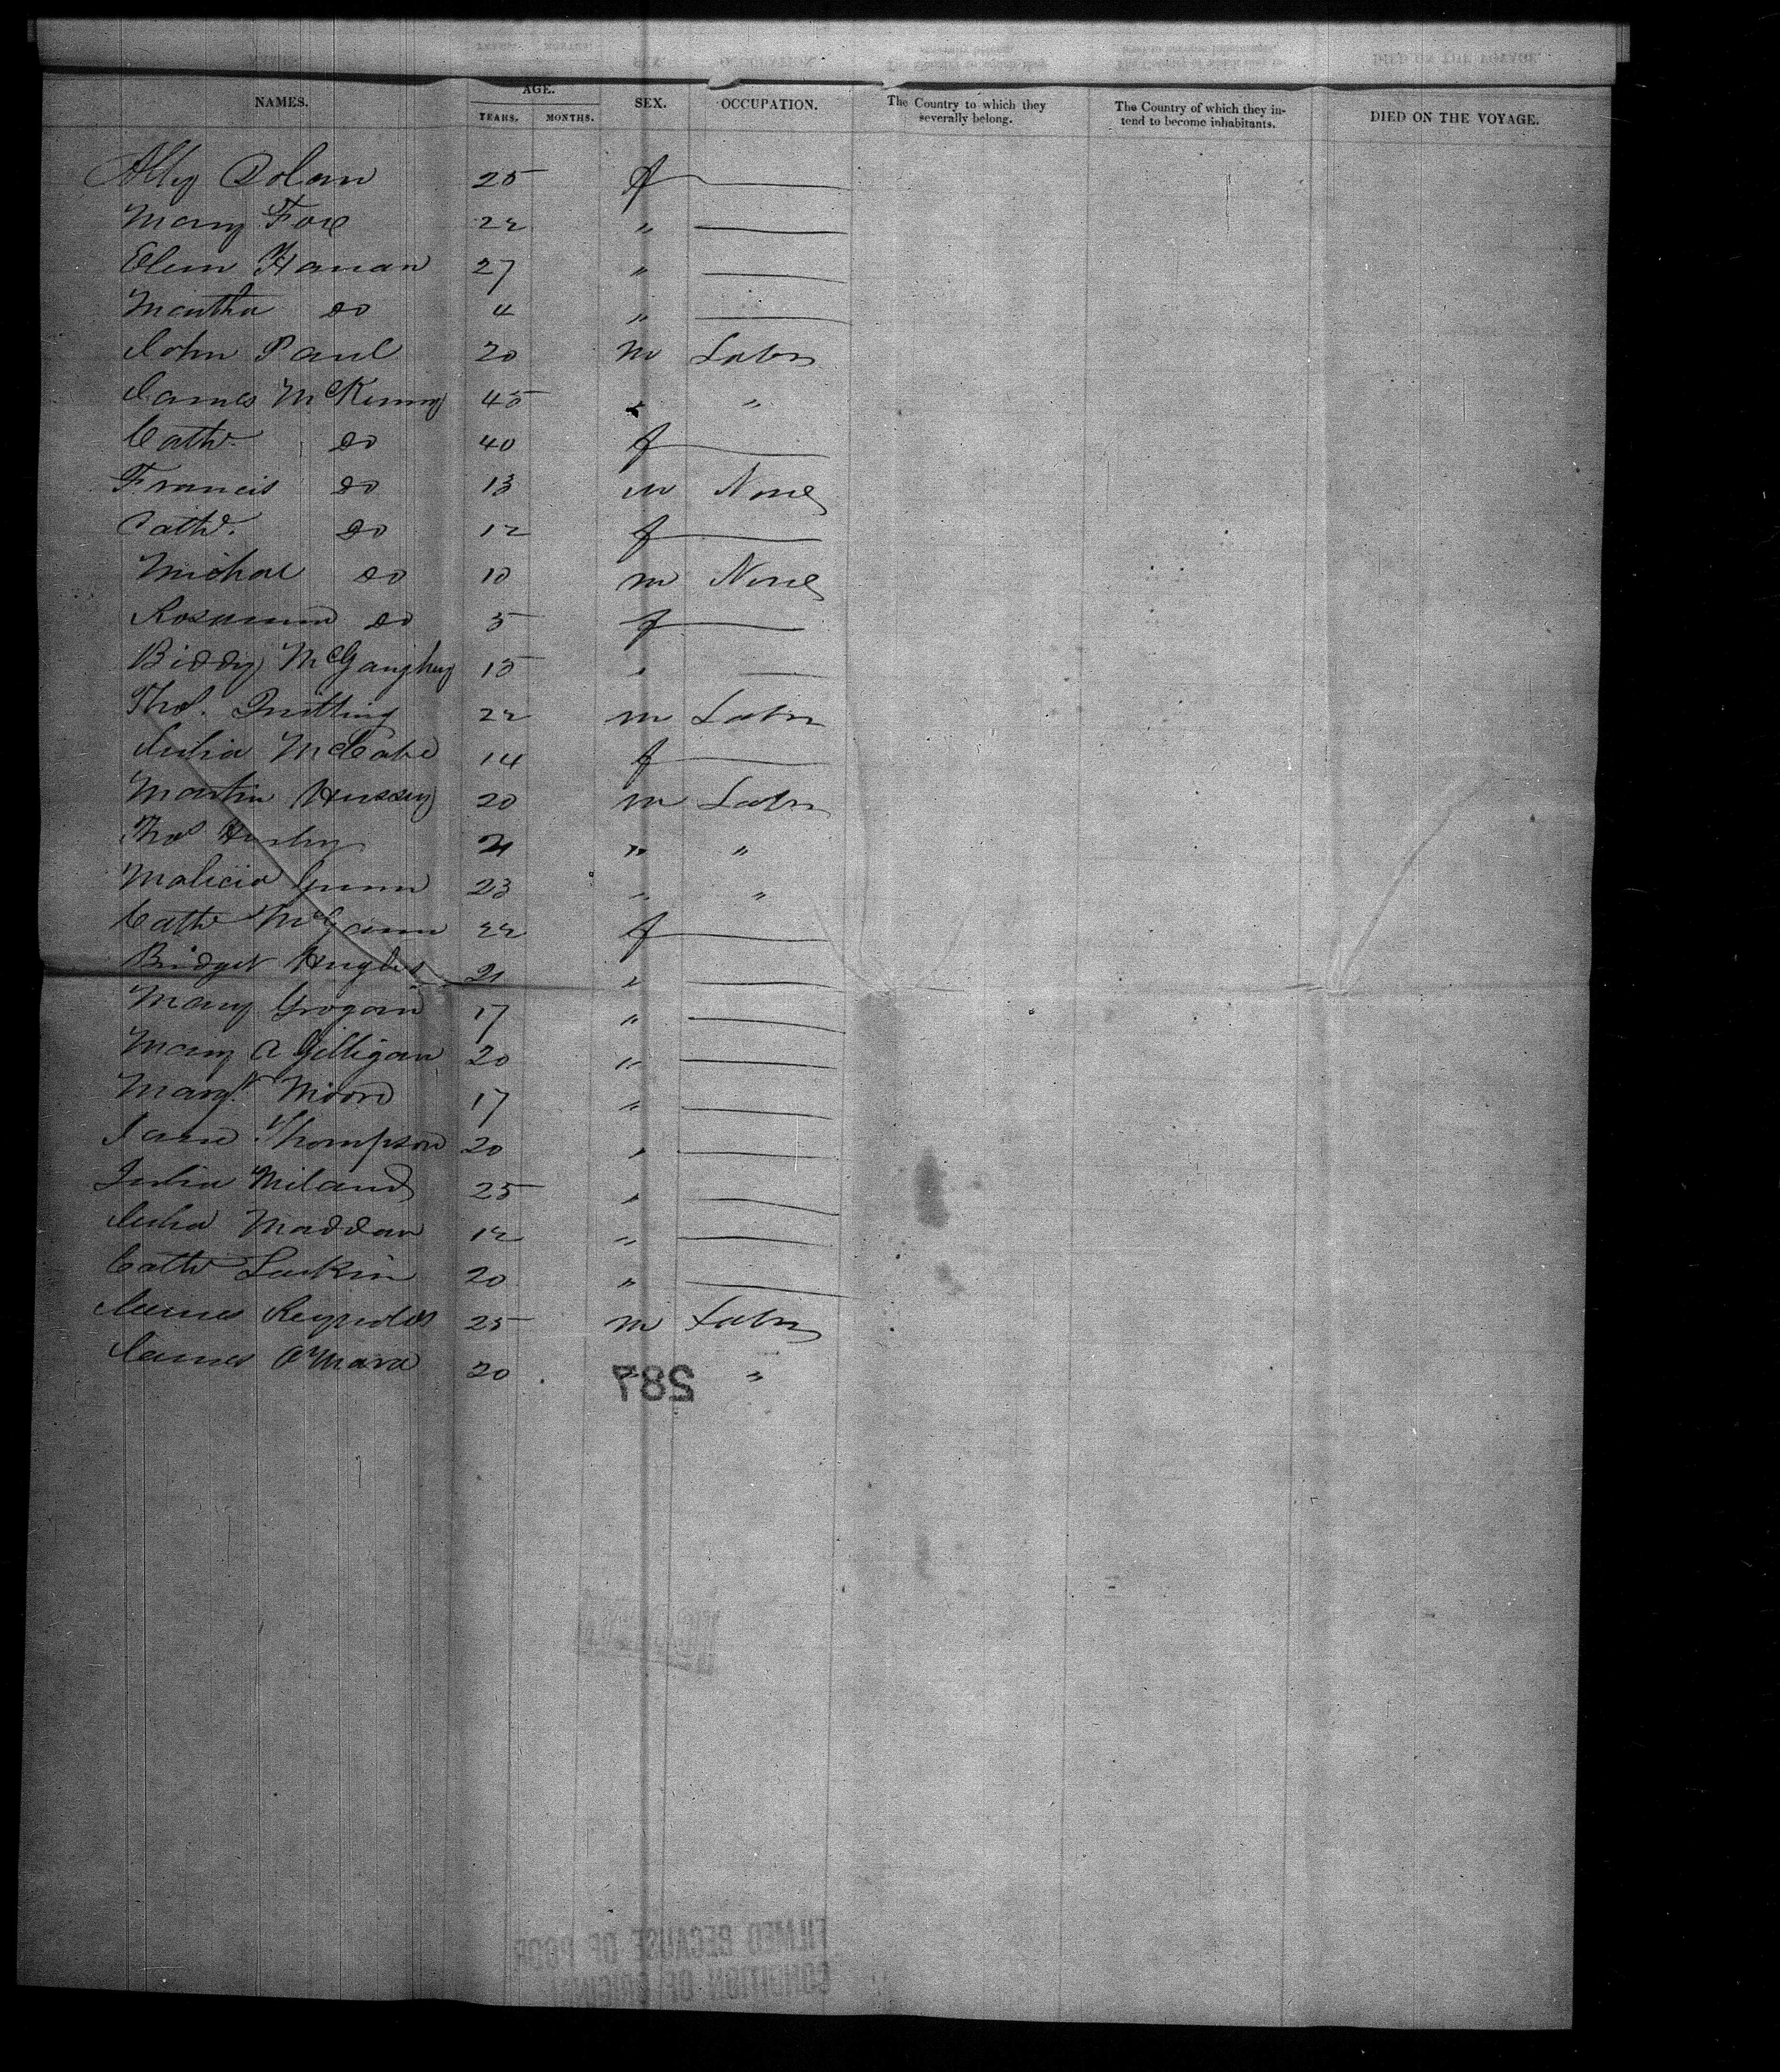 NAMES. AGE. SEX. OCCUPATION. The Country to which they severally belong. The Country of which they intend to become inhabitants. DIED ON THE VOYAGE.
YEARS. MONTHS.
Ally Dolan 25 f
Mary Fox 22 "
Elen Hanan 27 "
Martha do 4 "
John Paul 20 m Labr
James McKenny 45 " "
Cathe do 40 f
Francis do 13 m None
Cathe. do 12 f
Michael do 10 m None
Rosannn do 5 f
Biddy McGaughey 15 "
Thos. 22 m Labr
Julia McCabe 14 f
Martin Hussey 20 m Labr
Thos 21 " "
Gunn 23 " "
Cathe McGann 22 f
Bridget Hughes 21 "
Mary Grogan 17 "
Mary A Gilligan 20 "
Margt. Moore 17 "
Jane Thompson 20 "
Julia Miland 25 "
Julia Maddan 12 "
Cathe Larkin 20 "
James Reynolds 25 m Labr
James O'Mara 20 "
287
FILMED BECAUSE OF POOR
CONDITION OF ORIGINAL